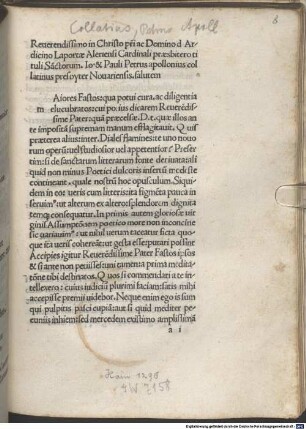 Collatius, Petrus Apoll
6
Reuerendissimo in Christo pri ac Domino d Ar
dicino Laportæ Aleriensi Cardinali præsbitero ti
tuli Sāctorum. Io & Pauli Petrus apollonius col
latinus presoyter Nouariensis. salutem
Aiores Fastos qua potui cura, ac diligentia
m elucubratos cui potius dicarem Reuerēdis
sime Pater quā præcelsæ. D. t. quæ illos an
te impositā supremam manum efflagitauit. Quis
præterea aliusinter. Diales flamines te uno nouo
rum operū uel studiosior uel appetentior? Præser
tim si de sanctarum litterarum fonte deriuata sint
quod non minus Poetici dulcoris inserti modeste
contineant, quale nostrū hoc opusculum. Siqui
dem in eos ueris cum litteris ita figmēta paucā in
seruimus ut alterum ex altero splendorem dignita
temq; consequatur. In primis autem gloriosæ uir
ginis Assumptionem poetico more non inconcinne
sic uariauimus ut nihil uerum taceatur ficta quo
que ita ueris cohereāt ut gesta esse putari possint
Accipies igitur Reuerēdissime Pater Fastos ipsos
& si ante non peruissesim iumenta prima medita
tiōe tibi destinatos. Quos si commendari a te in
tellexero: cuius iudiciū plurimi faciam: satis mihi
accepisse premii uidebor. Neque enim ego is sum
qui pulpitis pisci cupiā: aut si quid mediter pe
cuniis inhiem: sed mercedem existimo amplissimā
a i
Hain 1290
GW 7158